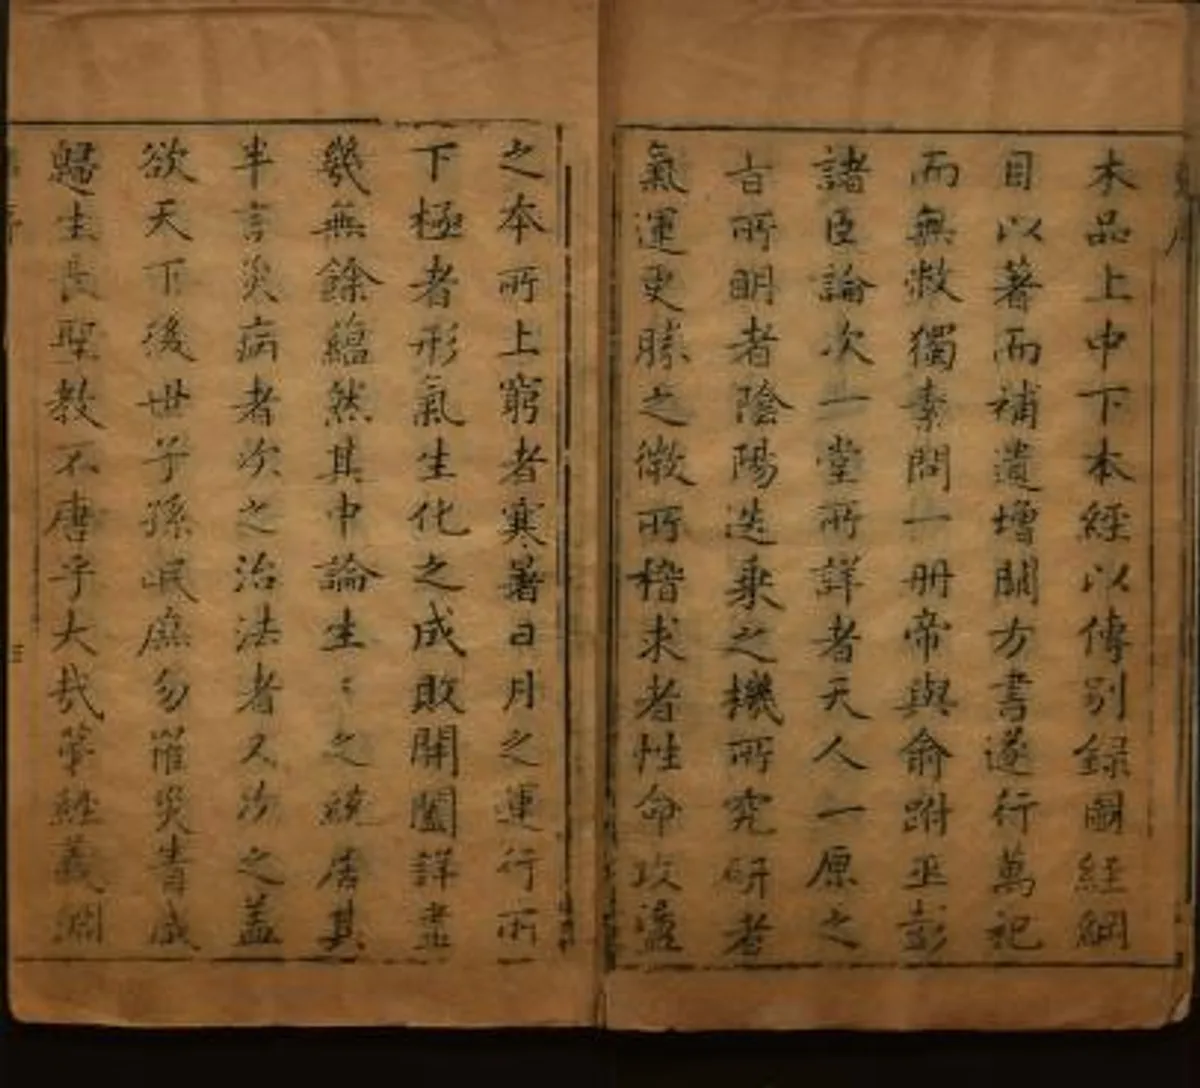 木品上中下本經以傳别録圖經綱
目以著而補遺增闢方書遂行萬祀
而無敝獨素問一册帝與俞跗巫彭
諸臣論次一堂所詳者天人一原之
旨所明者陰陽迭乗之機所究研者
氣運更勝之微所稽求者性命攻盪
之本所上窮者寒暑日月之運行所
下極者形氣生化之成敗開闔詳盡
幾無餘緼然其中論生〻之統居其
半言災病者次之治法者又次之蓋
欲天下後世子孫氓庶勿罹災眚咸
歸生長聖教不唐乎大哉等經義淵